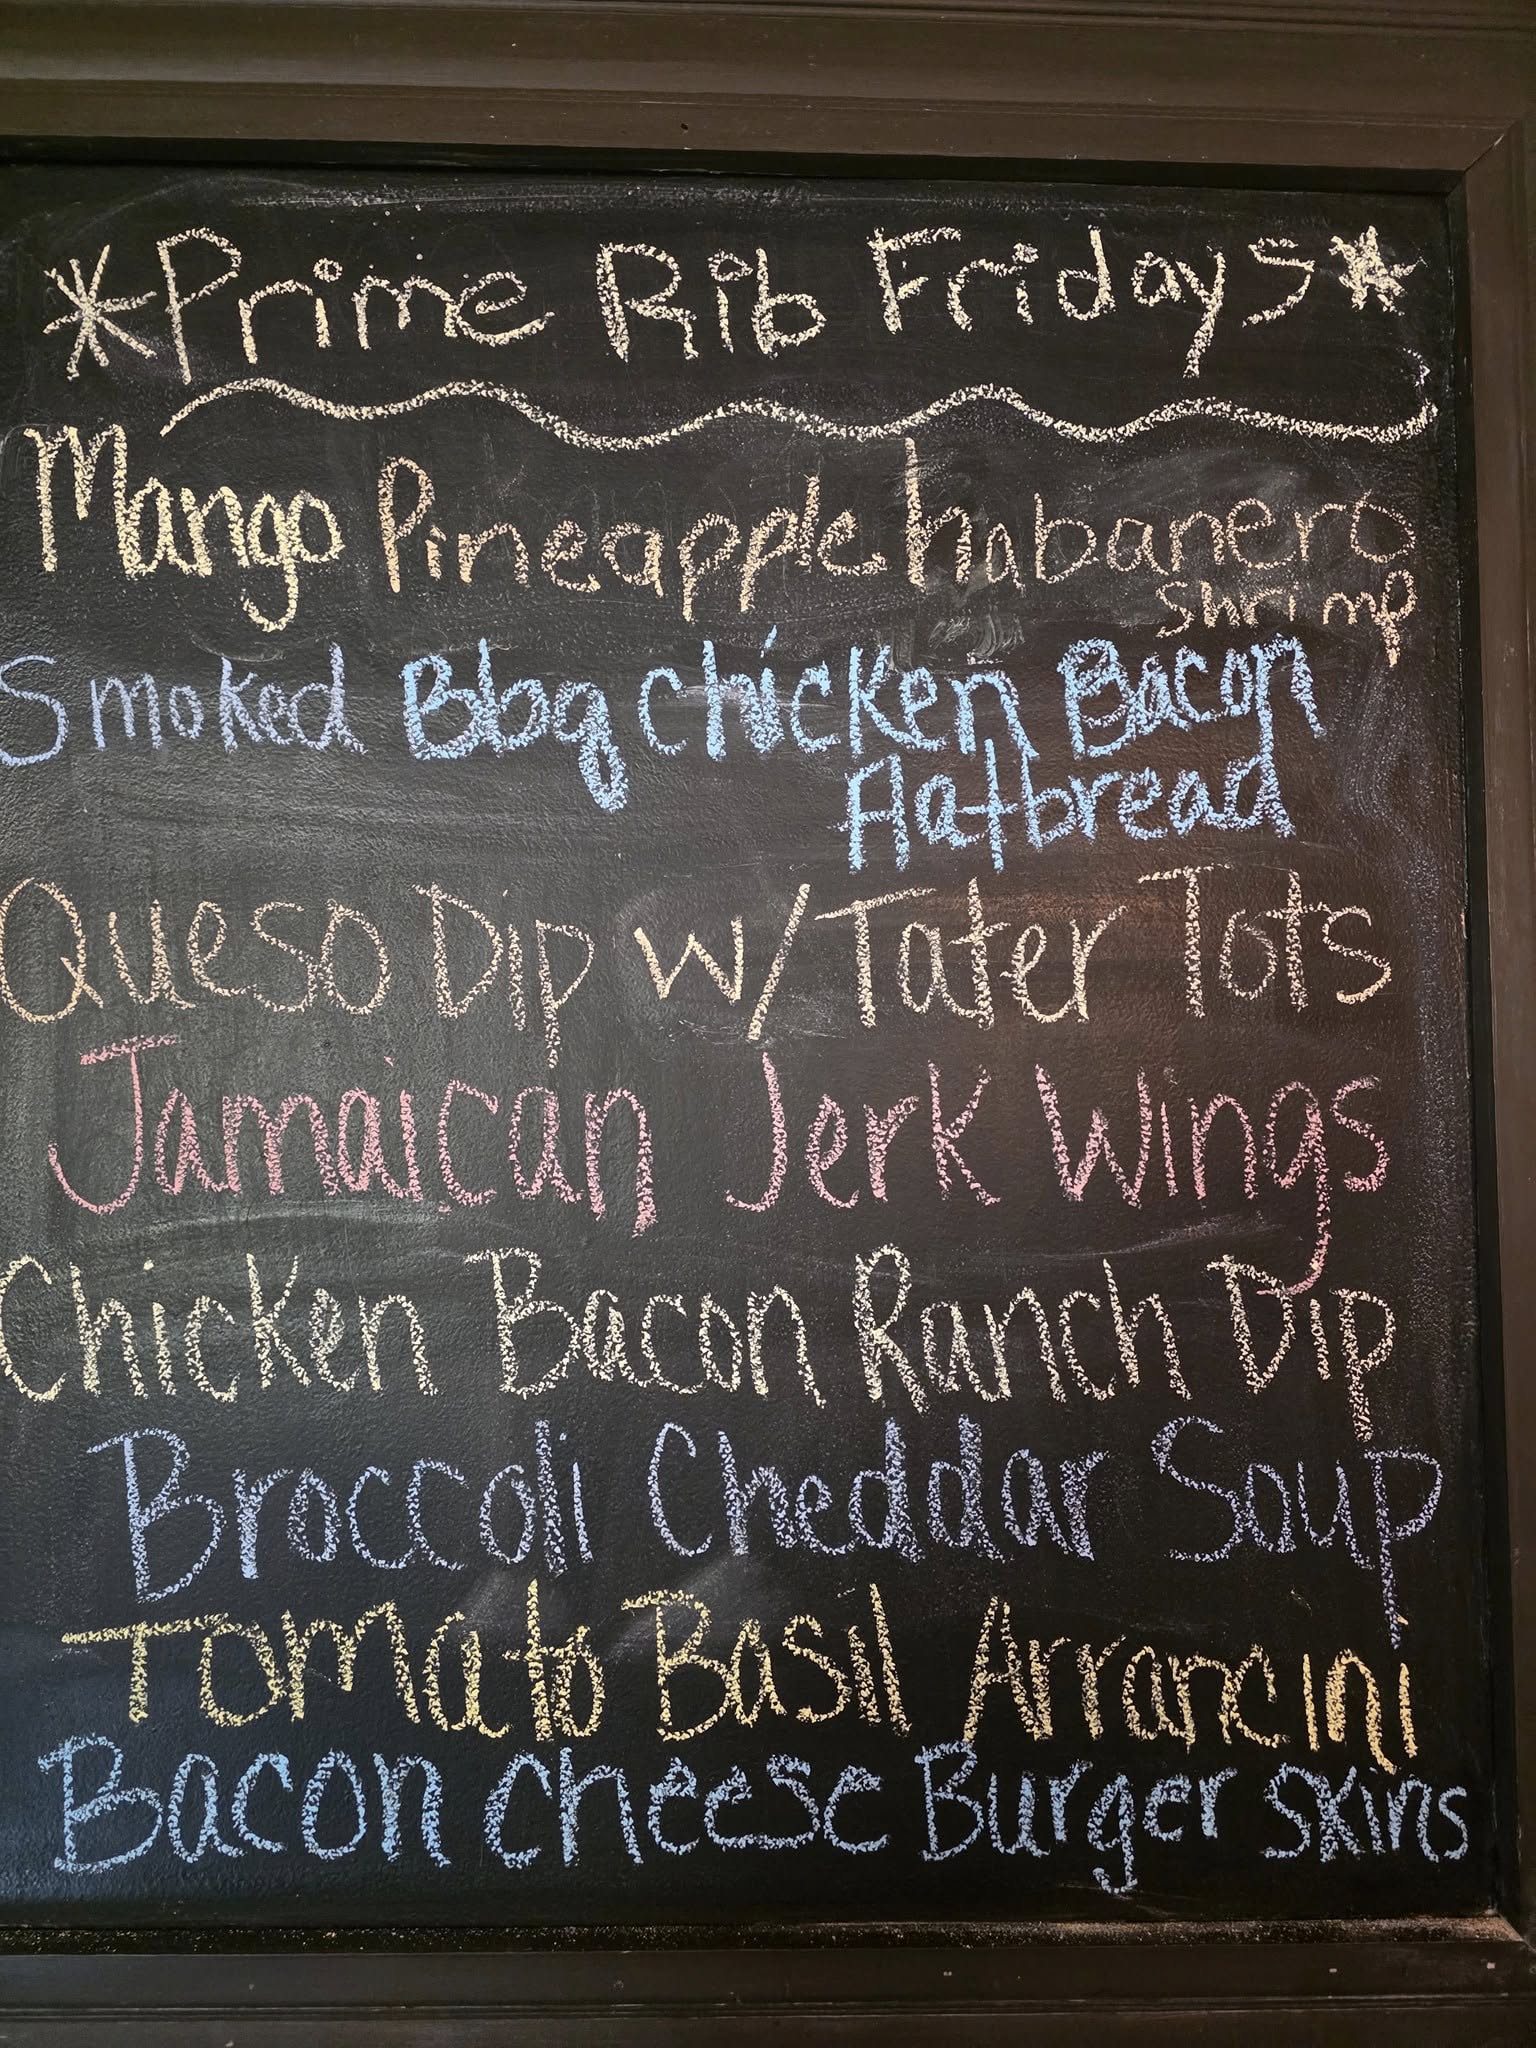 *Prime Rib Fridays*
Mango Pineapple habanero
shrimp
Smoked Bbq chicken Bacon
flatbread
Queso Dip w/ Tater Tots
Jamaican Jerk Wings
Chicken Bacon Ranch Dip
Broccoli Cheddar Soup
Tomato Basil Arrancini
Bacon cheese Burger skins